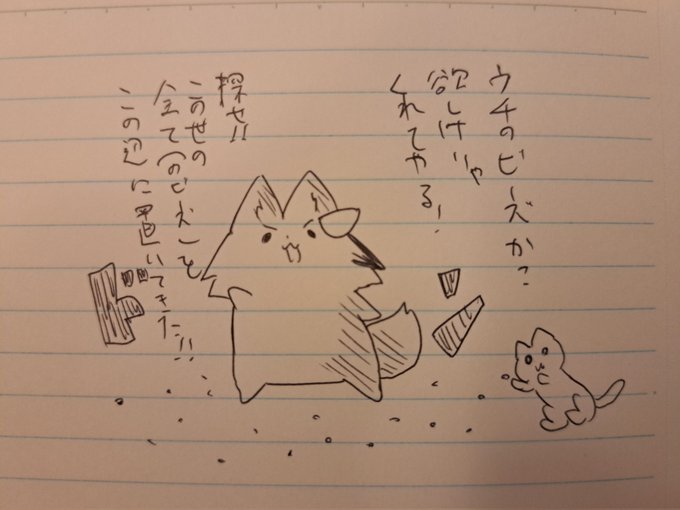 ウチのビーズか?
欲しけりゃ
くれてやる!
探せ!!
この世の
全て(のビーズ)を
この辺に置いてきた!!
ドン